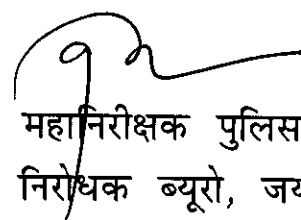 महानिरीक्षक पुलिस
निरोधक ब्यूरो,